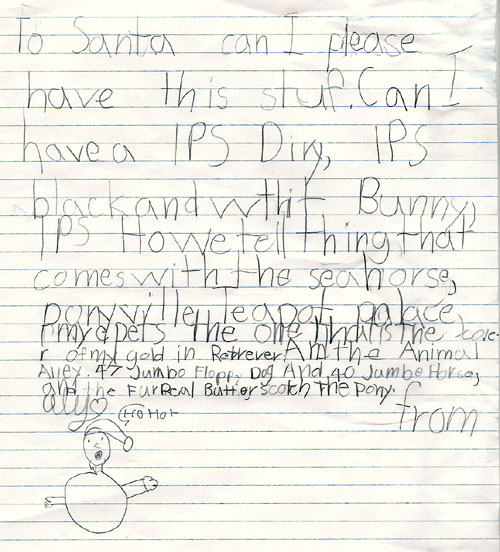 To Santa can I please
have this stuf. Can I
have a IPS Diry, IPS
black and whit Bunny,
IPS Howetell thing that
comes with the seahorse,
ponyville teapot palace,
the one that is the
r of my gold in Retrever, An the Animal
Alley 47 Jumbo Floppy Dog And 40 Jumbe Horse,
and the FurReal Butterscotch the Pony.
from
ally
Ho Ho